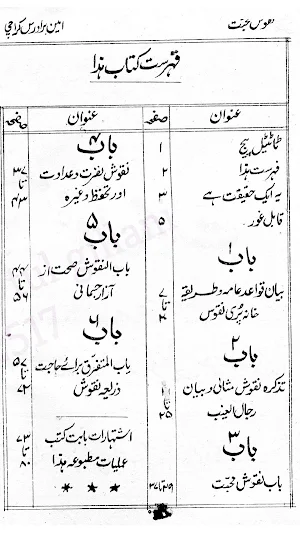 نقوش محبت امین برادرس کراچی
فہرست کتاب ہذا
عنوان صفحہ
ٹائٹیل پیج ۱
فہرست ہذا ۲
یہ ایک حقیقت ہے ۳
قابل غور ۵
باب ۱
بیان قواعد عامہ و طریقہ ۷ تا
خانہ پُری نقوش
باب ۲
تذکرہ نقوش مثانی و بیان تا
رجال الغیب
باب ۳
باب نقوش محبت
عنوان صفحہ
باب ۴
نقوش نفرت و عداوت ۳۷ تا
اور تحفظ وغیرہ ۴۳
باب ۵
باب النقوش صحت از ۴۴ تا
آزار جسمانی ۵۶
باب ۶
باب المتفرق برائے حاجت ۵۷ تا
ذریعہ نقوش ۷۲
اشتہارات بابت کتب ۷۳ تا
عملیات مطبوعہ ہذا ۸۰